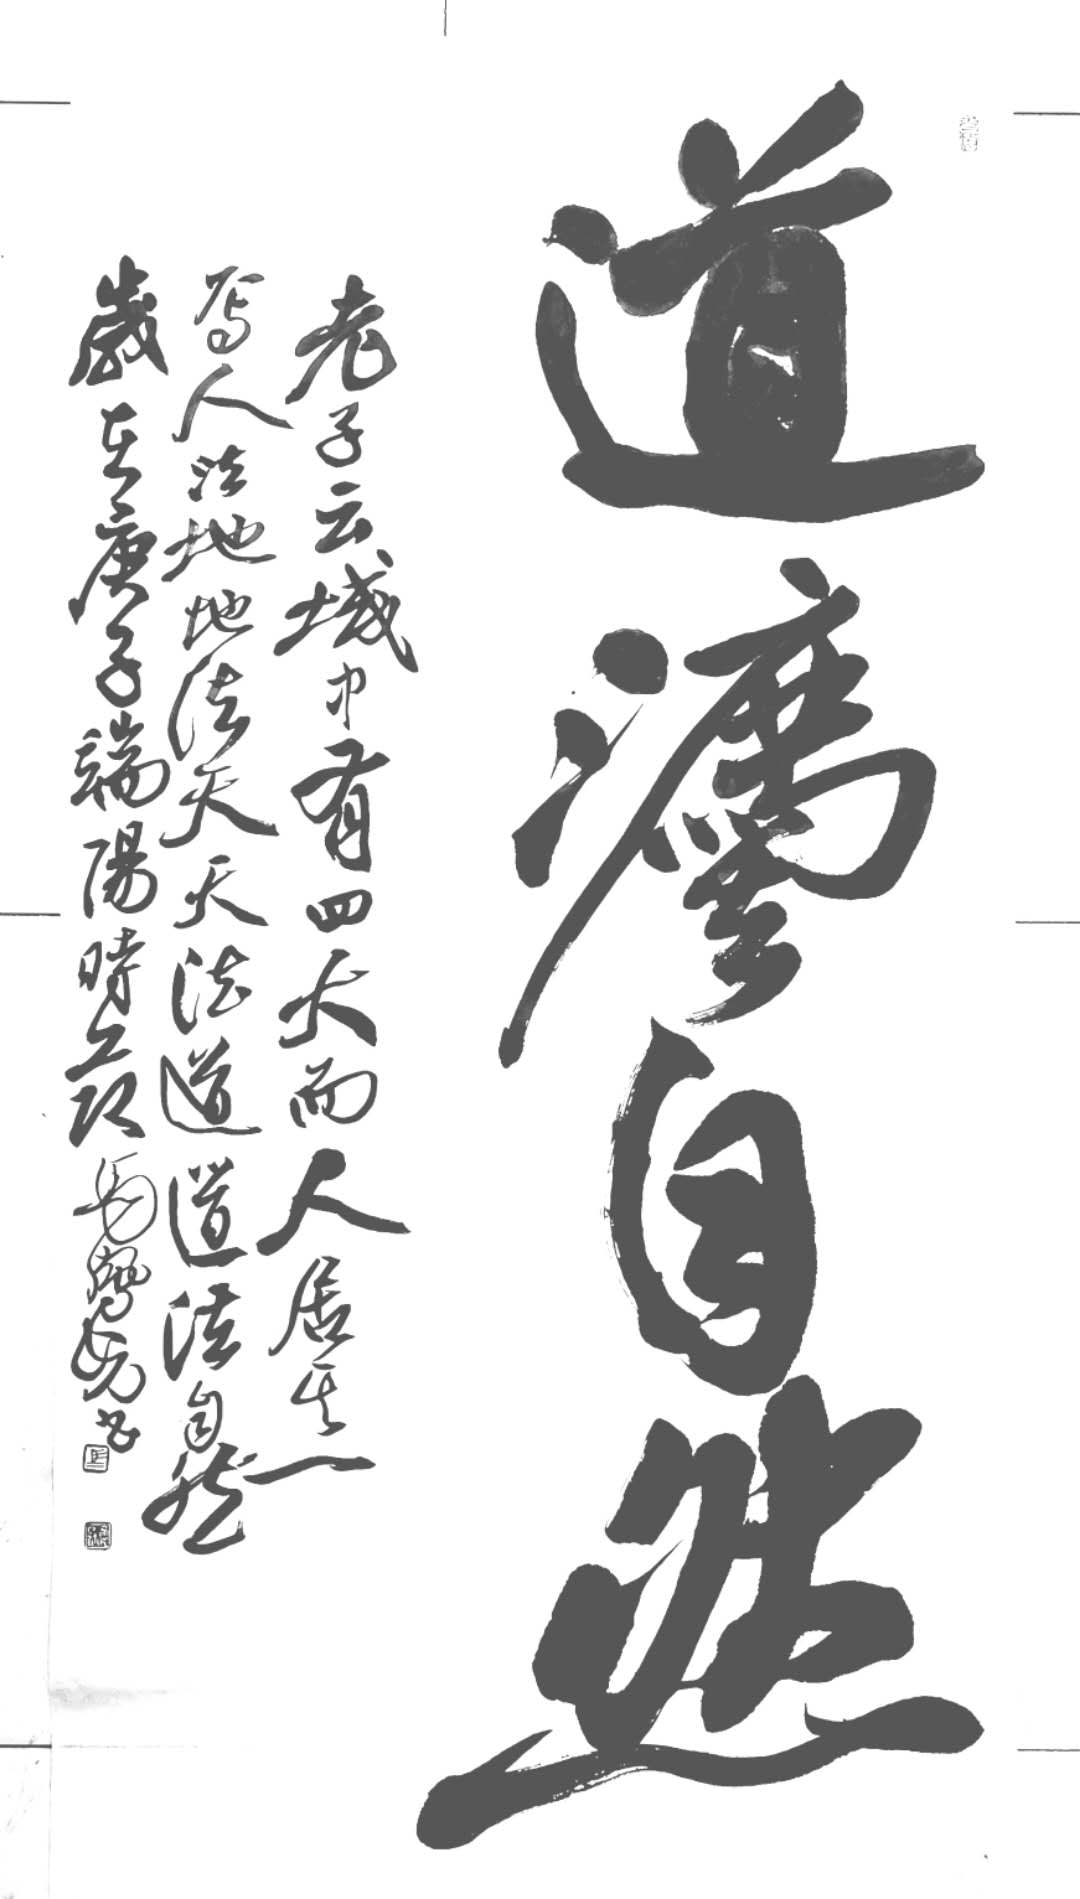 道灋自然
老子云域中有四大而人居其一
焉人法地地法天天法道道法自然
歲在庚子端陽時節